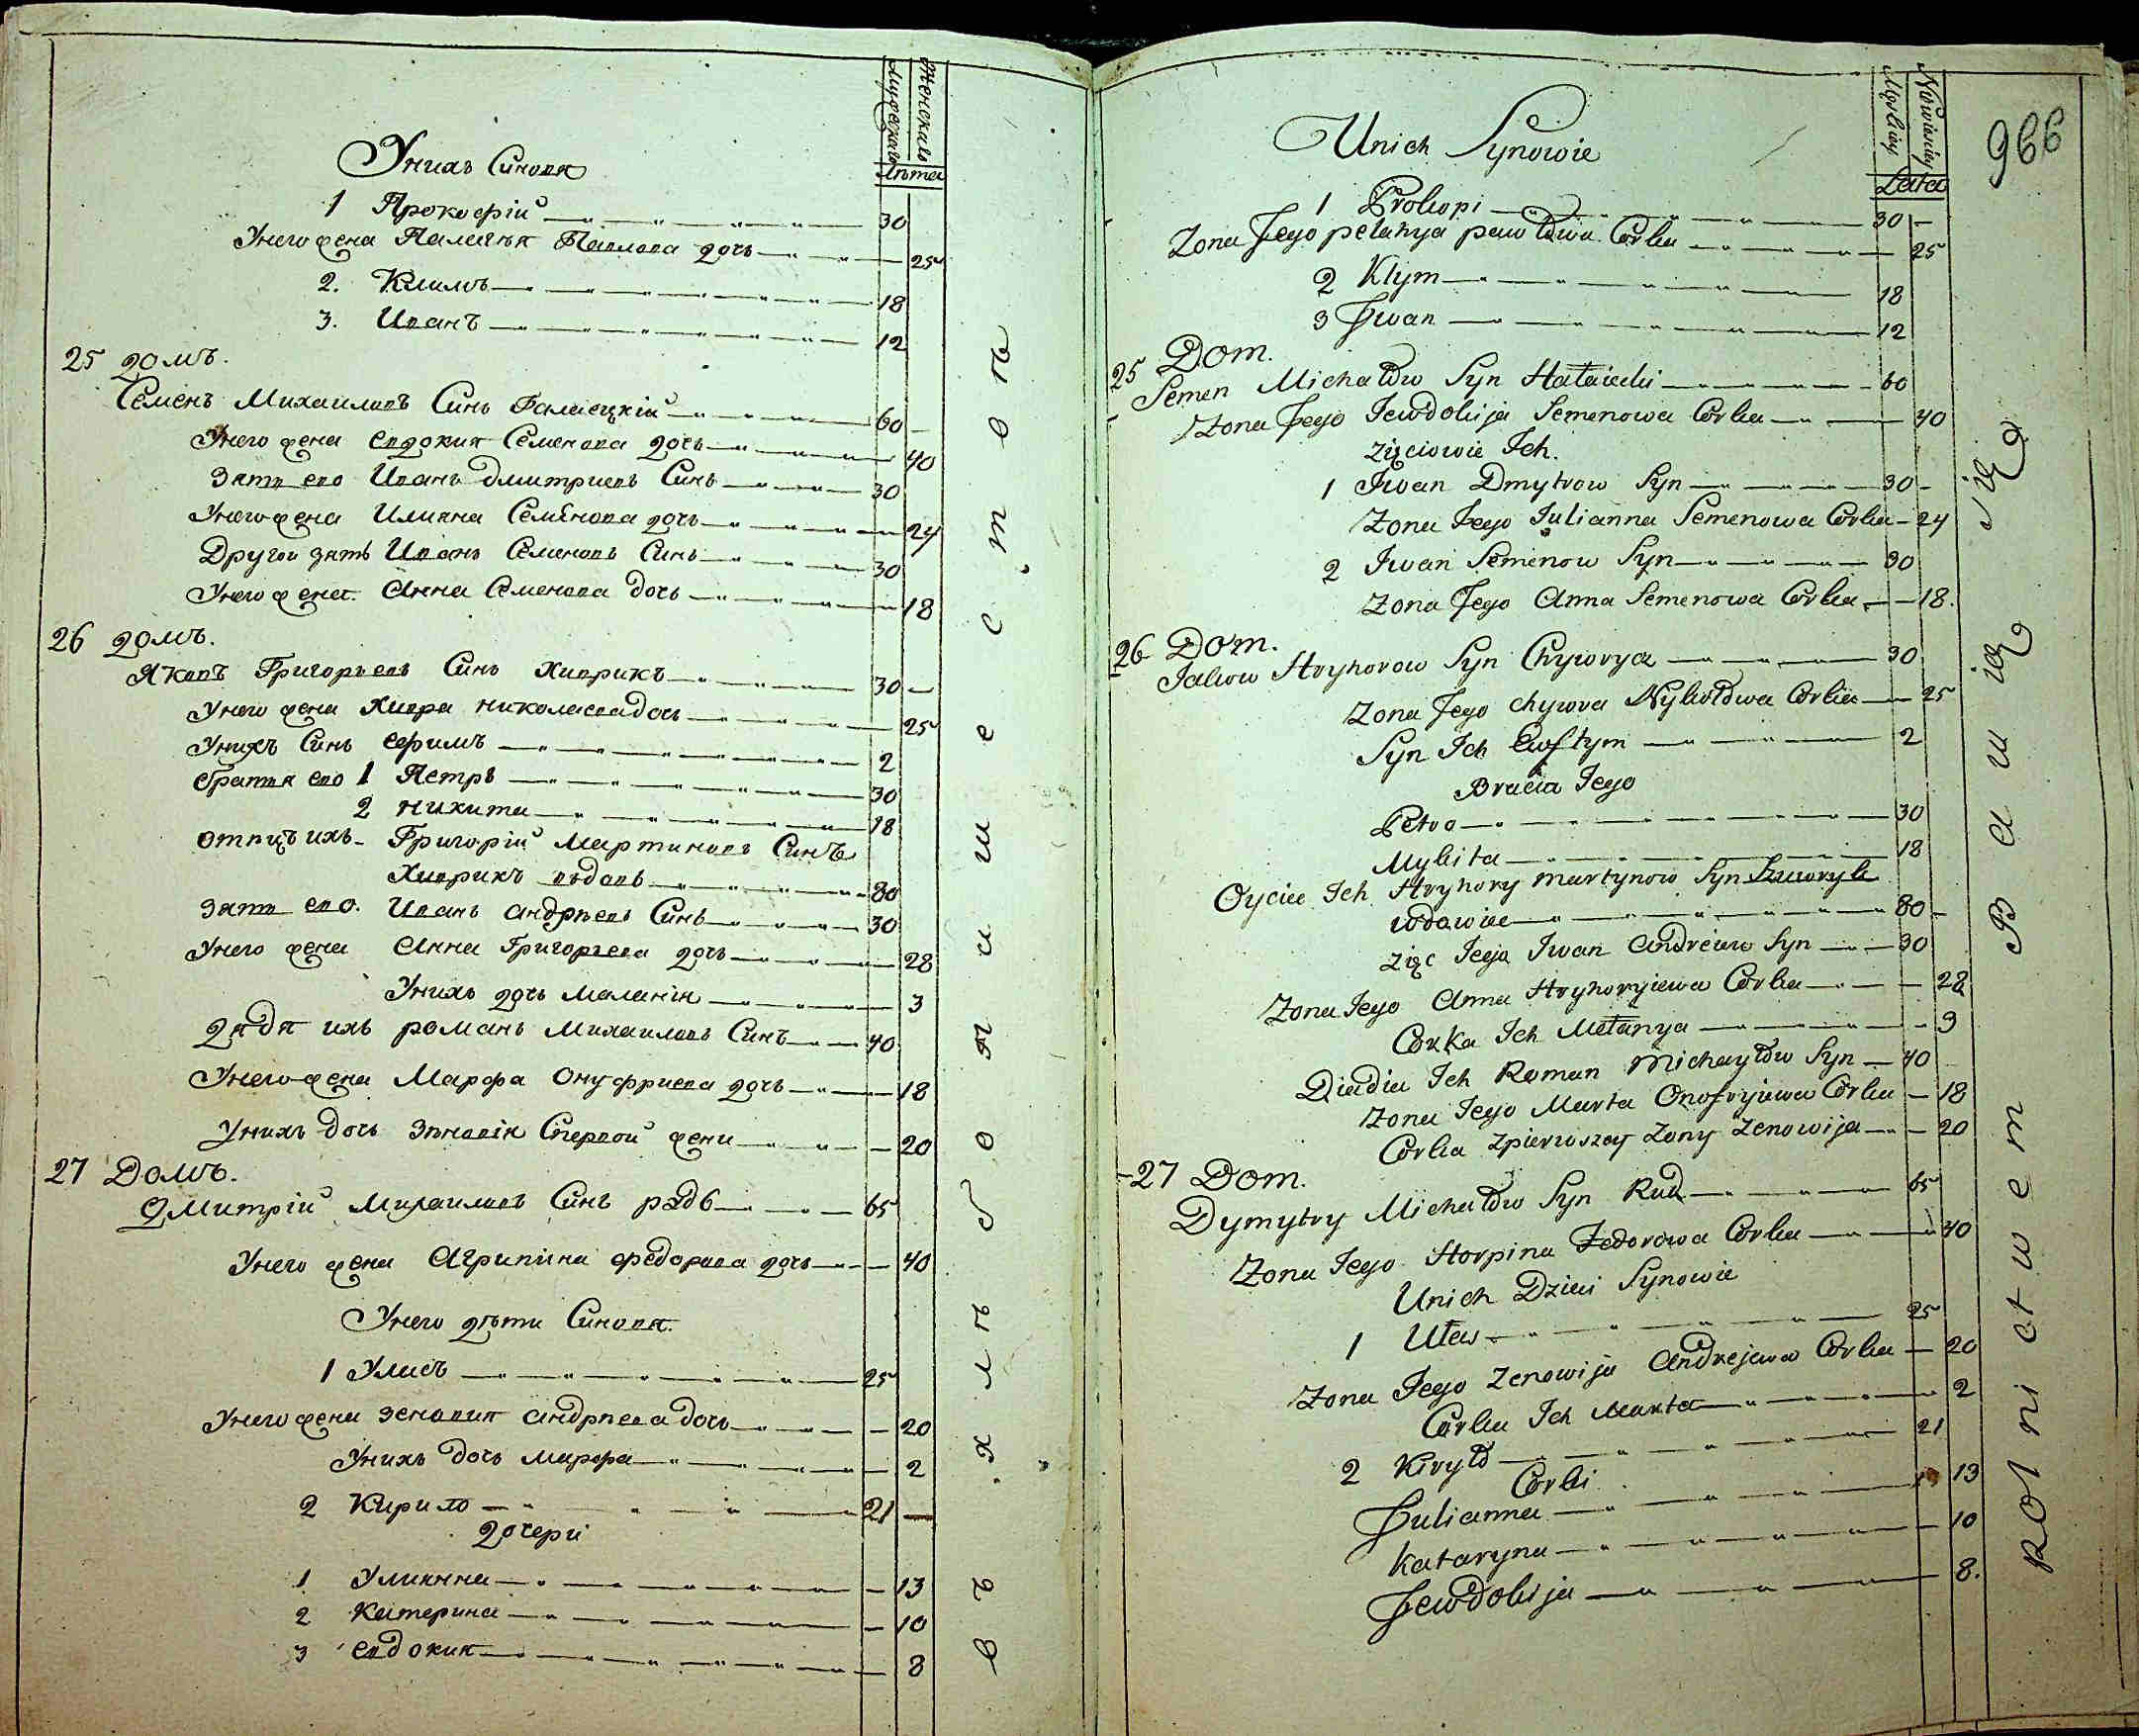 Мужеска
Женска
лѣта
Унихъ Синовя
1 Прокофій 30
Унего жена Палагѣя Павлова дочь 25
2. Климъ 18
3. Иванъ 12
25 домъ.
Семенъ Михаиловъ Синъ Галаецкій 60
Унего жена Евдокия Семенова дочь 40
Зять его Иванъ Дмитриевъ Синъ 30
Унего жена Илияна Семенова дочь 24
Другои зять Иванъ Семеновъ Синъ 30
Унего жена Анна Семенова дочь 18
26 домъ.
Яковъ Григорьевъ Синъ Хиврикъ 30
Унего жена Хивра николаева дочь 25
Унихъ Синъ Ефимъ 2
братья его 1 Петръ 30
2 никита 18
отецъ ихъ Григорій Мартиновъ Синъ
Хиврикъ вѣдовъ 80
Зять его Иванъ андрѣевъ Синъ 30
Унего жена Анна Григорьева дочь 28
Унихъ дочь Маланія 3
дядя ихъ романъ Михаиловъ Синъ 40
Унего жена Марфа Онуфриева дочь 18
Унихъ дочь Зѣновія Спервой жени 20
27 Домъ.
Дмитрій Михаиловъ Синъ рудъ 65
Унего жена Агрипина федорова дочь 40
Унего дѣти Синовя.
1 Уласъ 25
Унего жена зеновия андрѣева дочь 20
Унихъ дочь марфа 2
2 Кирило 21
дочері
1 Улияна 13
2 Катерина 10
3 Евдокия 8
въ хлѣбопашествѣ
Męskiey
Niewieściey
Lata
966
Unich Synowie
1 Prokopi 30
Zona Jego pelahya pawłowa Corka 25
2 Klym 18
3 Jwan 12
25 Dom.
Semen Michałow Syn Hałaiecki 60
Zona Jego Jewdokija Semenowa Corka 40
zięciowie Ich.
1 Jwan Dmytrow Syn 30
Zona Jego Julianna Semenowa Corka 24
2 Jwan Semenow Syn 30
Zona Jego Anna Semenowa Corka 18.
26 Dom.
Jakow Hryhorow Syn Chywryc 30
Zona Jego chywra Nykołowa Corka 25
Syn Ich Ewftym 2
Bracia Jego
Petro 30
Mykita 18
Oyciec Ich Hryhory martynow Syn Huwryk
wdowiec 80
zięc Jego Jwan Andreiew Syn 30
Zona Jego Anna Hryhoryiewa Corka 28
Corka Ich Mełanya 3
Diadia Ich Roman Michayłow Syn 40
Zona Jego Marta Onofryiewa Corka 18
Corka zpierwszey Zony Zenowija 20
27 Dom.
Dymytry Michałow Syn Rud 65
Zona Jego Horpina Fedorowa Corka 40
Unich Dzieci Synowie
1 Ułas 25
Zona Jego Zenowija Andrejewa Corka 20
Corka Ich Marta 2
2 Kiryło 21
Corki
Julianna 13
Kataryna 10
Jewdokija 8.
Rolnictwem Bawią się